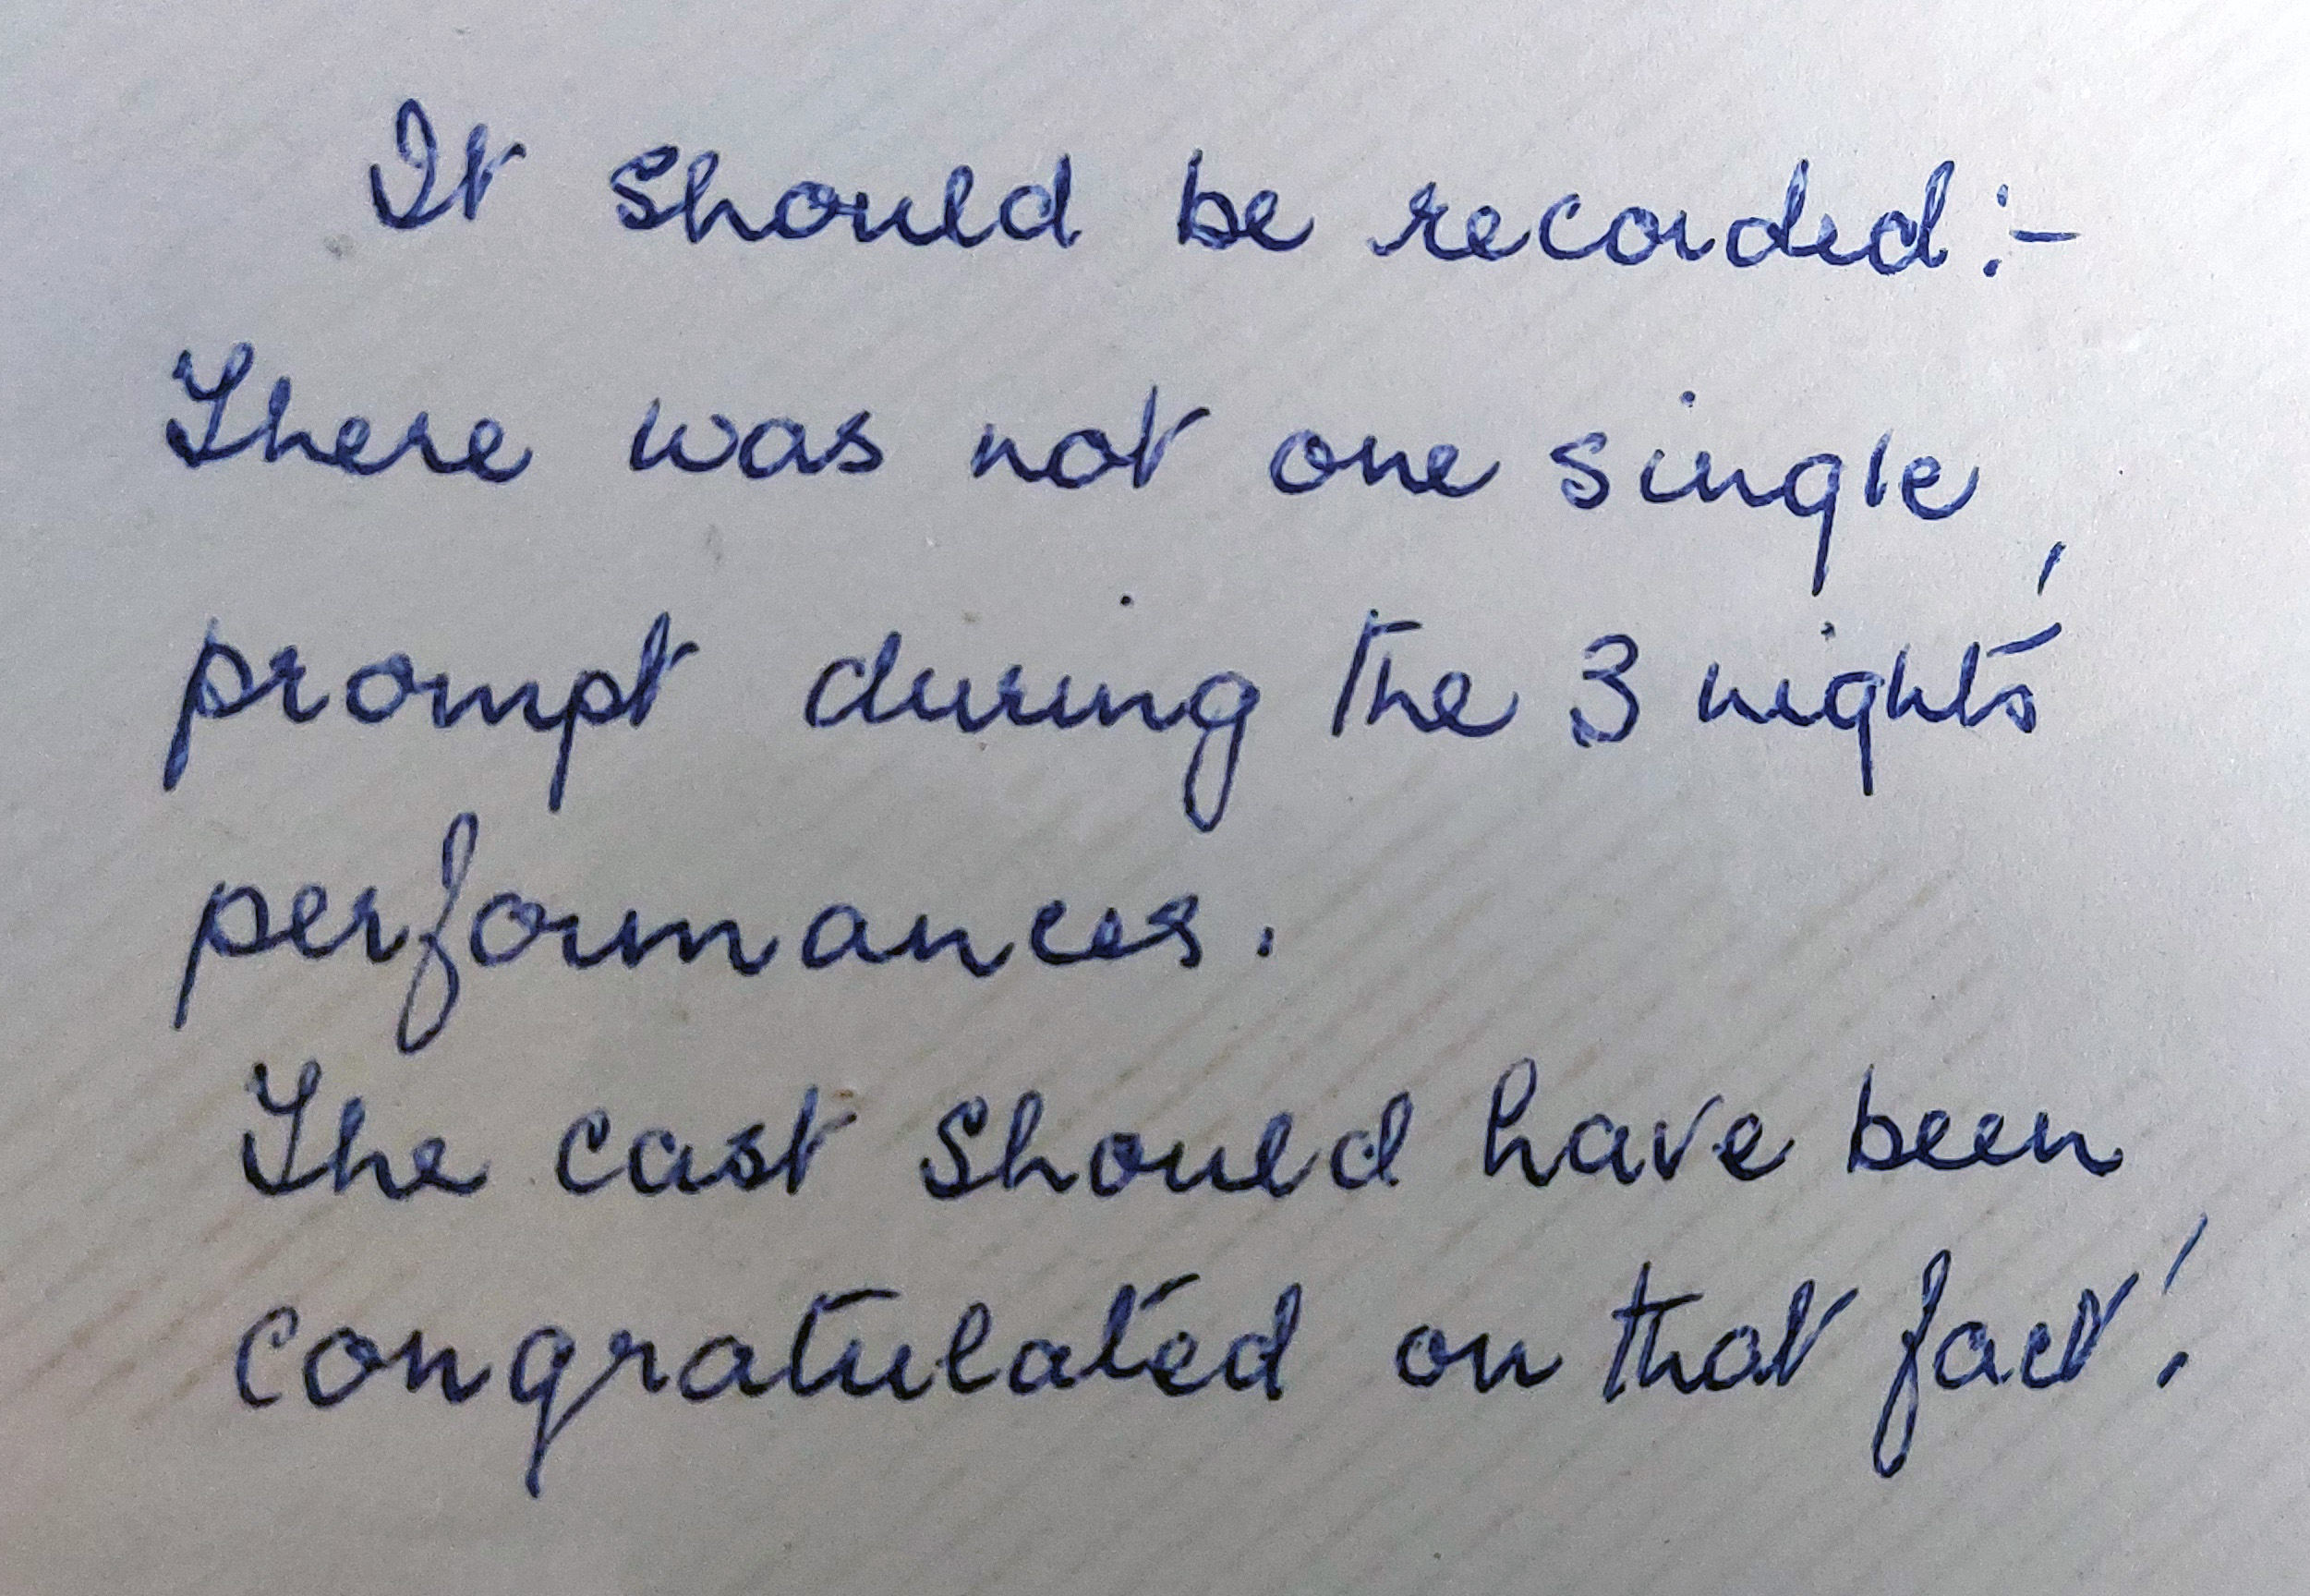 It should be recorded:-
There was not one single
prompt during the 3 nights'
performances.
The cast should have been
congratulated on that fact!